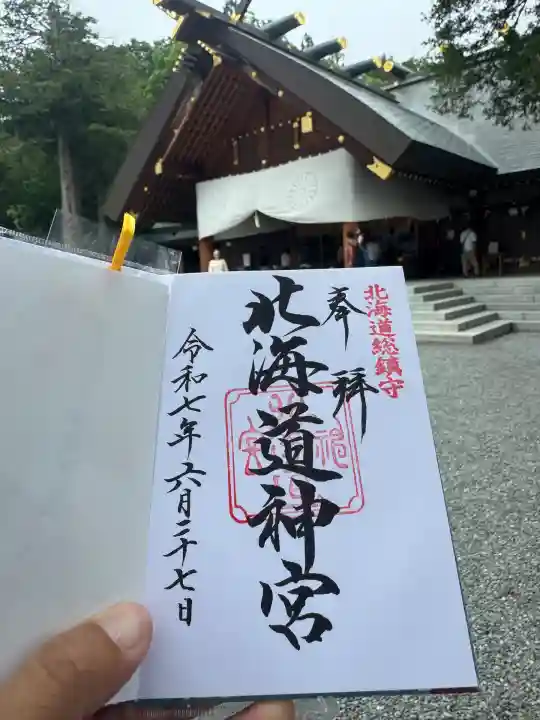 北海道総鎮守
奉拝
北海道神宮
令和七年六月二十七日